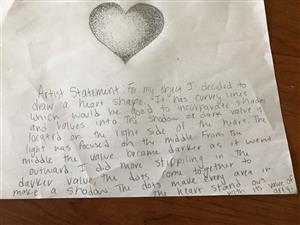 Artist Statement: For my object I decided to
draw a heart shape. It has curvy lines
which would be good to incorporate shade
and values into. The shadow or dark value is
located on the right side of the heart. The
light was focused on the middle. From the
middle the value became darker as it went
outward. I did more stippling in the
darker value, the dots come together to
make a shadow. The dots make every area in
the heart stand out
with its